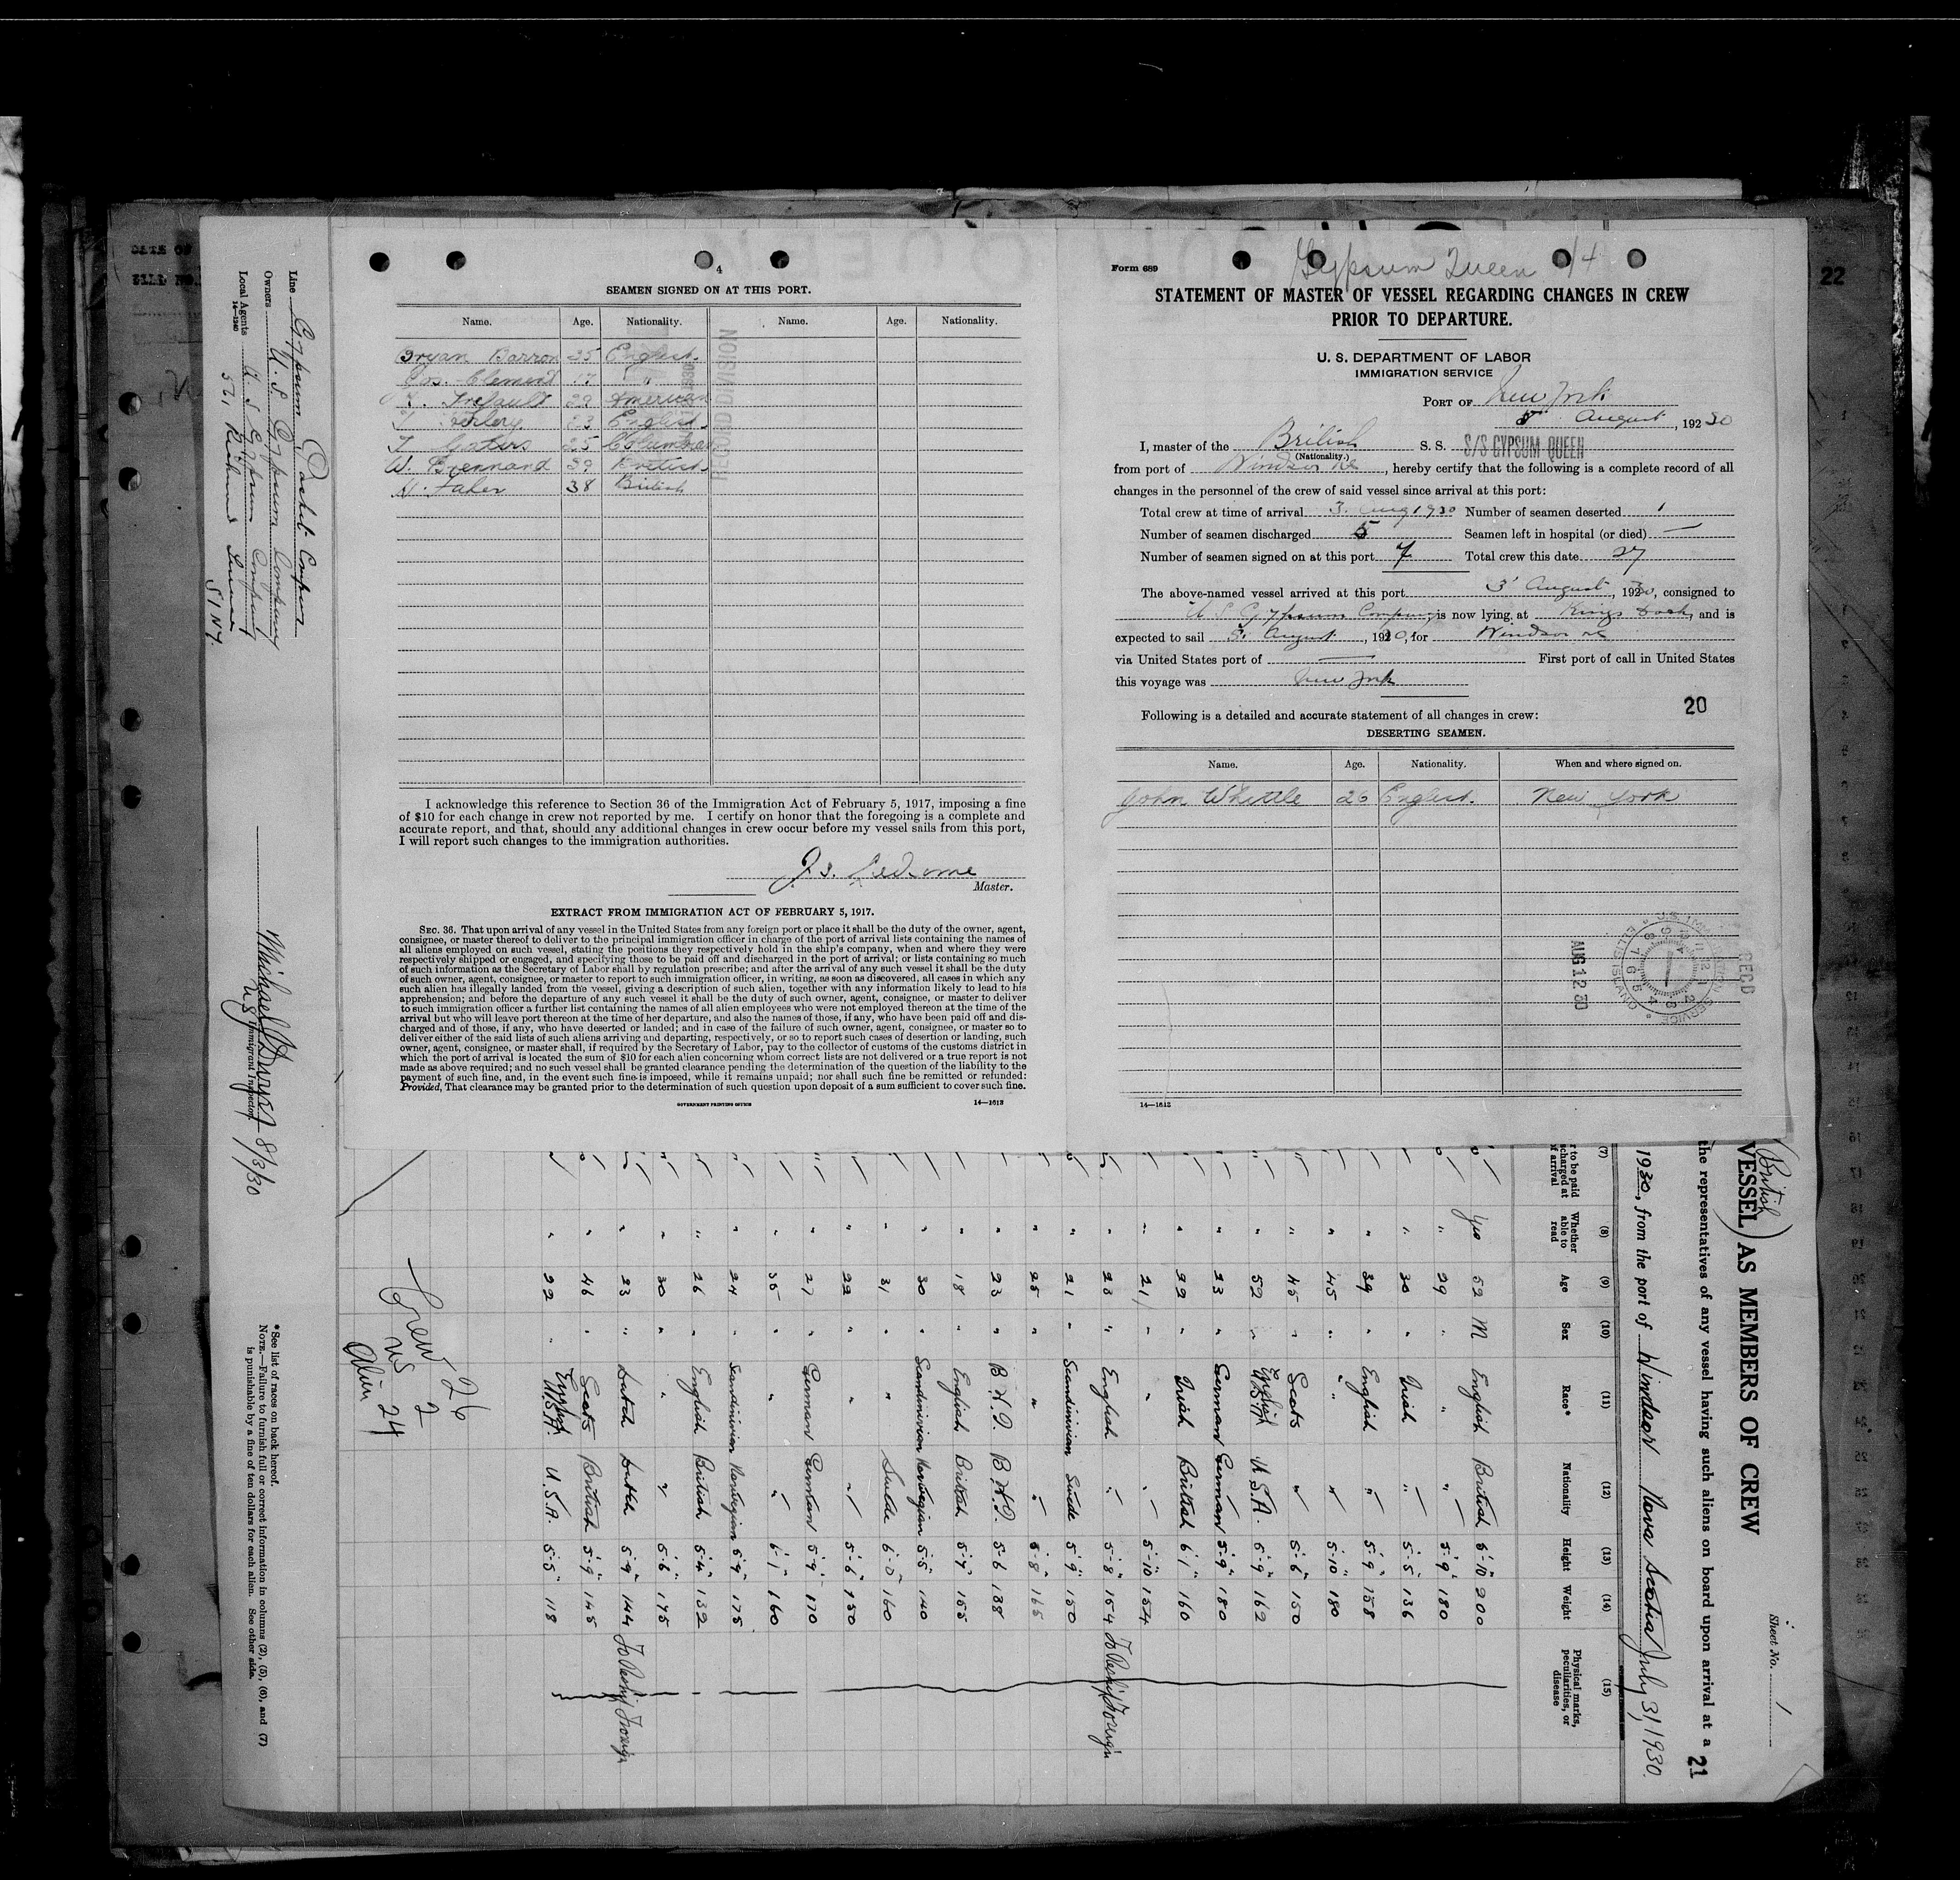 DATE OF
22
4
SEAMEN SIGNED ON AT THIS PORT.
Name. Age. Nationality. Name. Age. Nationality.
Bryan Barron 25 English.
Jos. Clement 17 "
22 American
23 English.
25
W. Brennand 39 British.
38 British
RECORD DIVISION
I acknowledge this reference to Section 36 of the Immigration Act of February 5, 1917, imposing a fine
of $10 for each change in crew not reported by me. I certify on honor that the foregoing is a complete and
accurate report, and that, should any additional changes in crew occur before my vessel sails from this port,
I will report such changes to the immigration authorities.
J. S.
Master.
EXTRACT FROM IMMIGRATION ACT OF FEBRUARY 5, 1917.
SEC. 36. That upon arrival of any vessel in the United States from any foreign port or place it shall be the duty of the owner, agent,
consignee, or master thereof to deliver to the principal immigration officer in charge of the port of arrival lists containing the names of
all aliens employed on such vessel, stating the positions they respectively hold in the ship's company, when and where they were
respectively shipped or engaged, and specifying those to be paid off and discharged in the port of arrival; or lists containing so much
of such information as the Secretary of Labor shall by regulation prescribe; and after the arrival of any such vessel it shall be the duty
of such owner, agent, consignee, or master to report to such immigration officer, in writing, as soon as discovered, all cases in which any
such alien has illegally landed from the vessel, giving a description of such alien, together with any information likely to lead to his
apprehension; and before the departure of any such vessel it shall be the duty of such owner, agent, consignee, or master to deliver
to such immigration officer a further list containing the names of all alien employees who were not employed thereon at the time of the
arrival but who will leave port thereon at the time of her departure, and also the names of those, if any, who have been paid off and dis-
charged and of those, if any, who have deserted or landed; and in case of the failure of such owner, agent, consignee, or master so to
deliver either of the said lists of such aliens arriving and departing, respectively, or so to report such cases of desertion or landing, such
owner, agent, consignee, or master shall, if required by the Secretary of Labor, pay to the collector of customs of the customs district in
which the port of arrival is located the sum of $10 for each alien concerning whom correct lists are not delivered or a true report is not
made as above required; and no such vessel shall be granted clearance pending the determination of the question of the liability to the
payment of such fine, and, in the event such fine is imposed, while it remains unpaid; nor shall such fine be remitted or refunded:
Provided, That clearance may be granted prior to the determination of such question upon deposit of a sum sufficient to cover such fine.
GOVERNMENT PRINTING OFFICE 14—1613
Form 689
Gypsum Queen 14
STATEMENT OF MASTER OF VESSEL REGARDING CHANGES IN CREW
PRIOR TO DEPARTURE.
U. S. DEPARTMENT OF LABOR
IMMIGRATION SERVICE
PORT OF New York
5 August, 192 30
I, master of the British S. S. S/S GYPSUM QUEEN
(Nationality.)
from port of Windsor NS, hereby certify that the following is a complete record of all
changes in the personnel of the crew of said vessel since arrival at this port:
Total crew at time of arrival 3. Aug 1930 Number of seamen deserted 1
Number of seamen discharged 5 Seamen left in hospital (or died) —
Number of seamen signed on at this port 7 Total crew this date 27
The above-named vessel arrived at this port 3' August, 1930, consigned to
U S Gypsum Company is now lying at Kings Dock, and is
expected to sail 5. August, 1930, for Windsor NS
via United States port of — First port of call in United States
this voyage was New York
20
Following is a detailed and accurate statement of all changes in crew:
DESERTING SEAMEN.
Name. Age. Nationality. When and where signed on.
John Whittle 26 English. New York
REC'D
AUG 12 30
U.S. IMMIGRATION SERVICE
ELLIS ISLAND
14—1613
Line Gypsum Packet Company
Owners U. S. Gypsum Company
Local Agents U S Gypsum Company
561 Richmond Terrace
S I N Y.
14—1240
Michael J.
US Immigrant Inspector.
8/3/30
Sheet No. 1
(British
VESSEL) AS MEMBERS OF CREW
the representatives of any vessel having such aliens on board upon arrival at a
21
1930, from the port of Windsor Nova Scotia July 31, 1930.
(7) (8) (9) (10) (11) (12) (13) (14) (15)
r to be paid
scharged at
f arrival
Whether able to read
Age
Sex
Race*
Nationality
Height
Weight
Physical marks, peculiarities, or disease
Yes 52 M English British 5-10 200
" 29 " " " 5-9 180
" 30 " Irish " 5-5 136
" 39 " English " 5-9 158
" 45 " " " 5-10 180
" 45 " Scots " 5-6 150
" 52 " English U.S.A. 5-9 162
" 23 " German German 5-9 180
" 22 " Irish British 6-1 160
" 21 " " " 5-10 154
" 23 " English " 5-8 154 To Reship Foreign
" 21 " Scandinivian Swede 5-9 150
" 25 " " " 5-8 165
" 23 " B.W.I. B.W.I. 5-6 138
" 18 " English British 5-7 155
" 30 " Scandinivian Norwegian 5-5 140
" 31 " " Swede 6-0 160
" 22 " " " 5-6 150
" 27 " German German 5-9 170
" 35 " " " 6-1 160
" 24 " Scandinivian Norwegian 5-9 175
" 26 " English British 5-4 132
" 30 " " " 5-6 175
" 23 " Dutch Dutch 5-9 144 To Reship Foreign
" 46 " Scots British 5-9 145
" 22 " English U.S.A. 5-5 118
Crew 26
US 2
Alien 24
*See list of races on back hereof.
NOTE.—Failure to furnish full or correct information in columns (2), (5), (6), and (7)
is punishable by a fine of ten dollars for each alien. See other side.